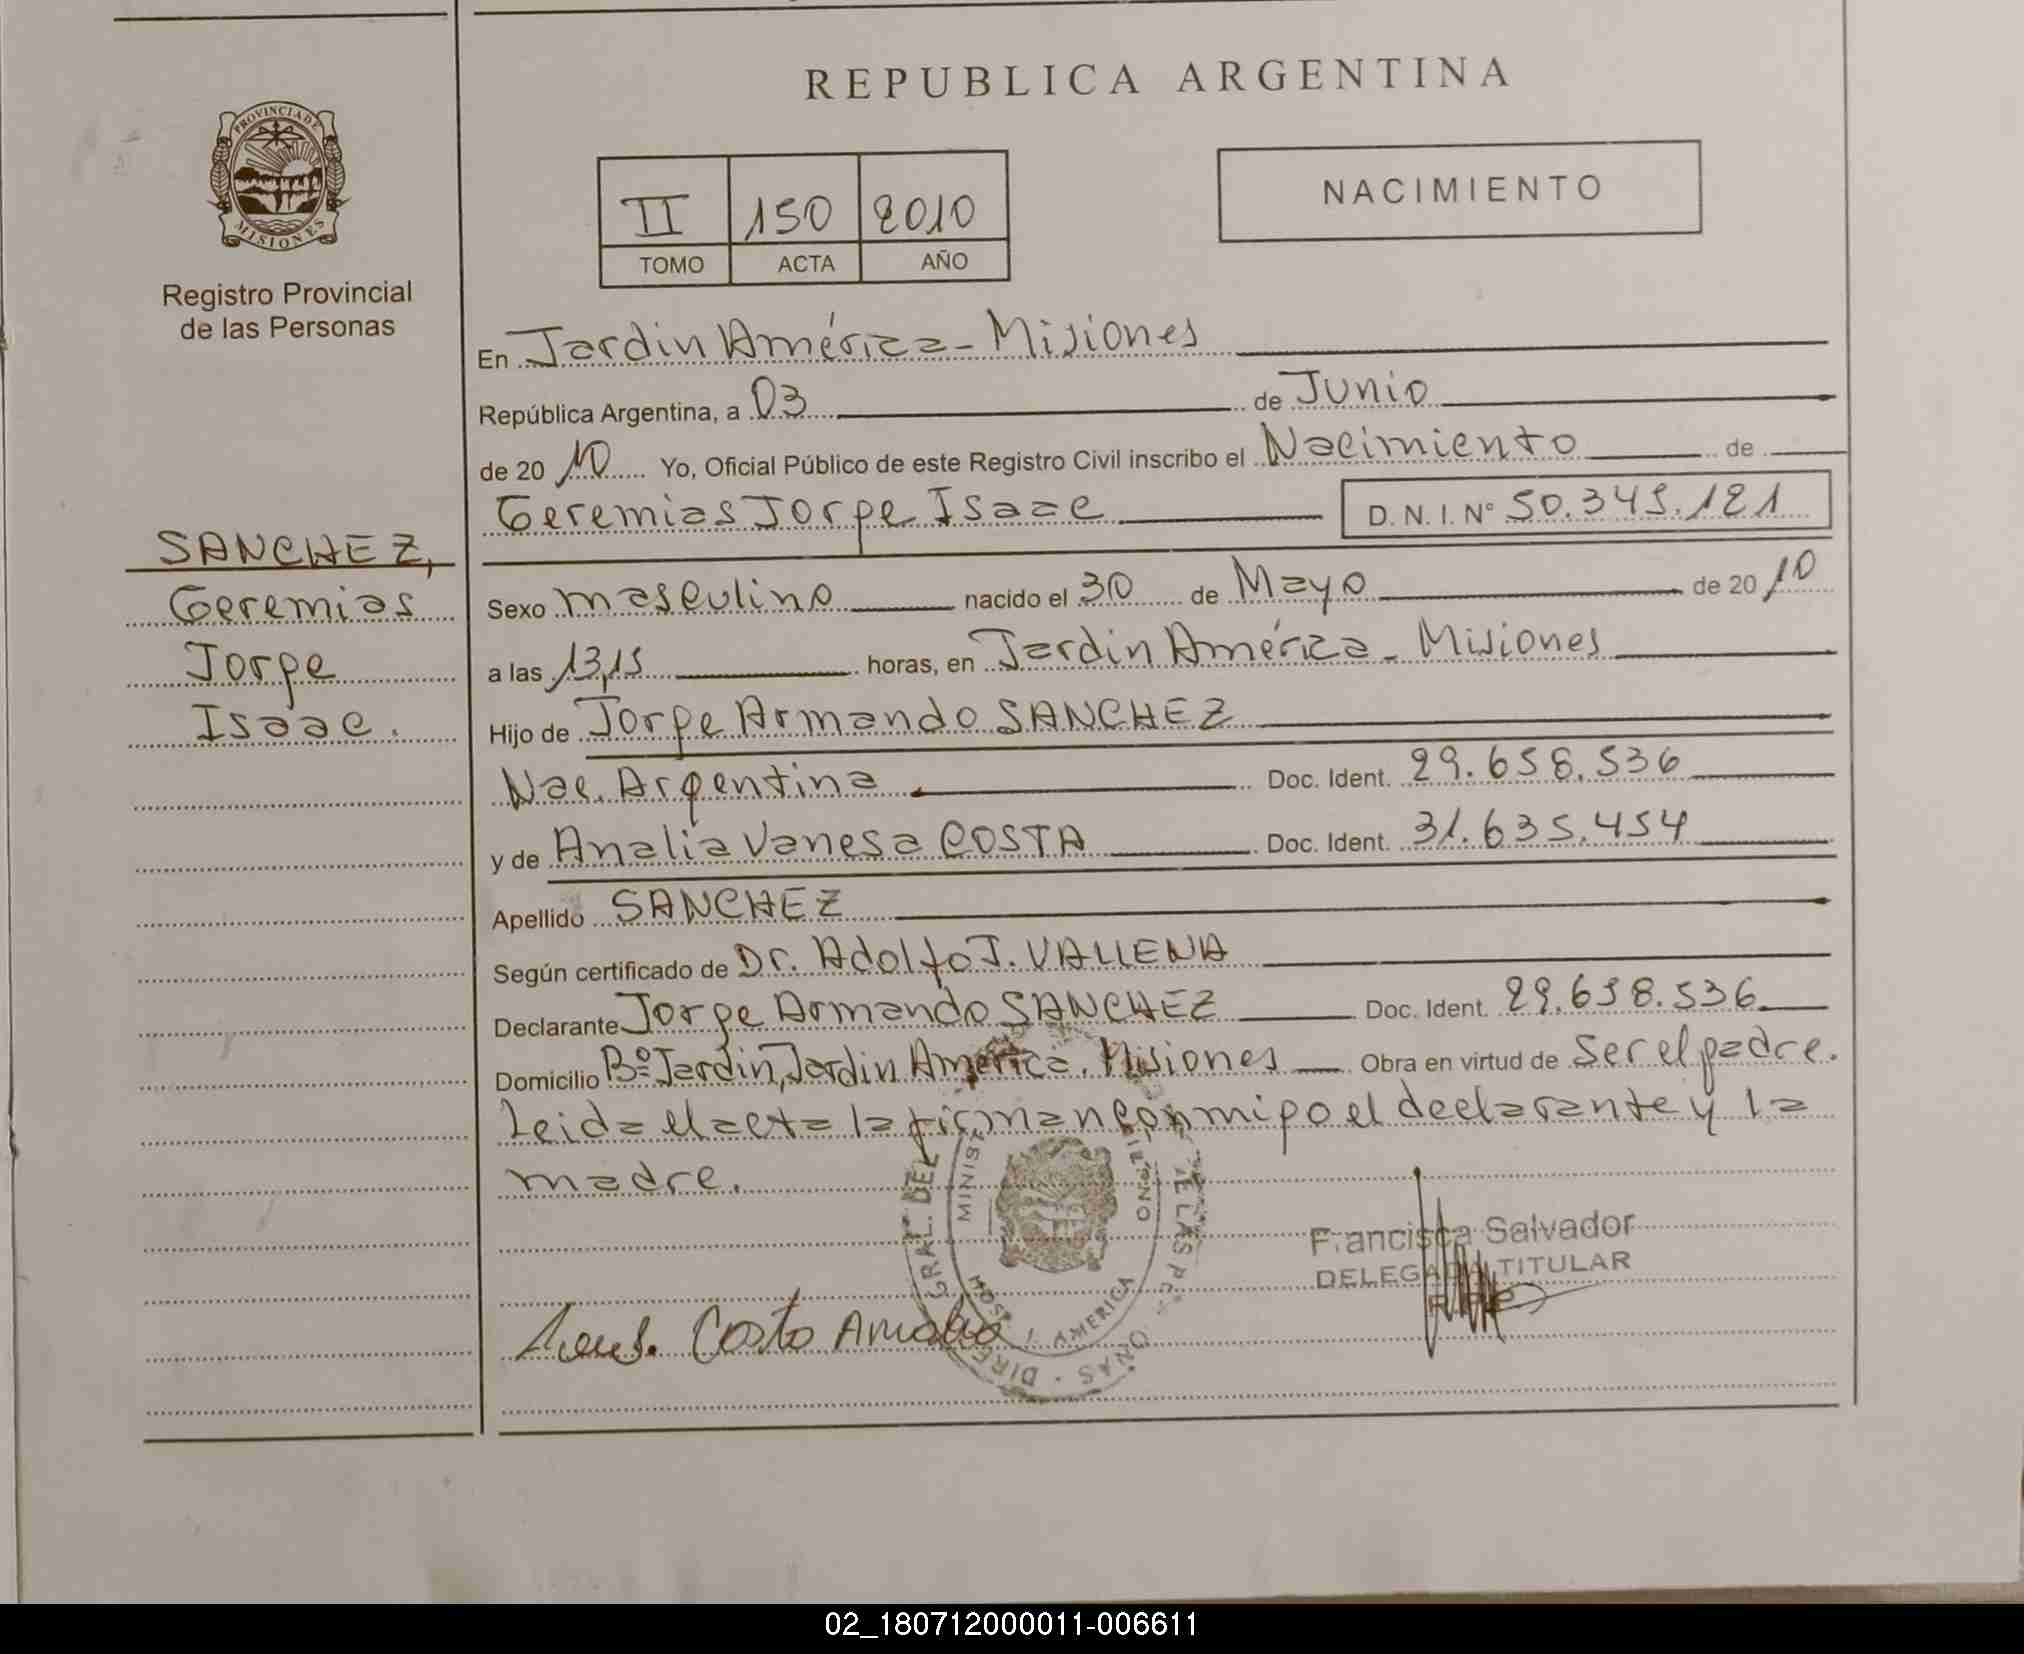 REPUBLICA ARGENTINA
PROVINCIA DE
MISIONES
Registro Provincial
de las Personas
NACIMIENTO
II 150 2010
TOMO ACTA AÑO
En Jardin América - Misiones
República Argentina, a 03 de Junio
de 20 10 Yo, Oficial Público de este Registro Civil inscribo el Nacimiento de
Geremias Jorge Isaac D.N.I. Nº 50.345.121
SANCHEZ,
Geremias
Jorge
Isaac.
Sexo masculino nacido el 30 de Mayo de 20 10
a las 13,15 horas, en Jardin América - Misiones
Hijo de Jorge Armando SANCHEZ
Nac. Argentina Doc. Ident. 29.658.536
y de Analia Vanesa COSTA Doc. Ident. 31.635.454
Apellido SANCHEZ
Según certificado de Dr. Adolfo J. VALLENA
Declarante Jorge Armando SANCHEZ Doc. Ident. 29.658.536
Domicilio Bº Jardin, Jardin América. Misiones Obra en virtud de Ser el padre.
Leida el acta la firman conmigo el declarante y la
madre.
Francisca Salvador
DELEGADA TITULAR
Costa Analia
02_180712000011-006611